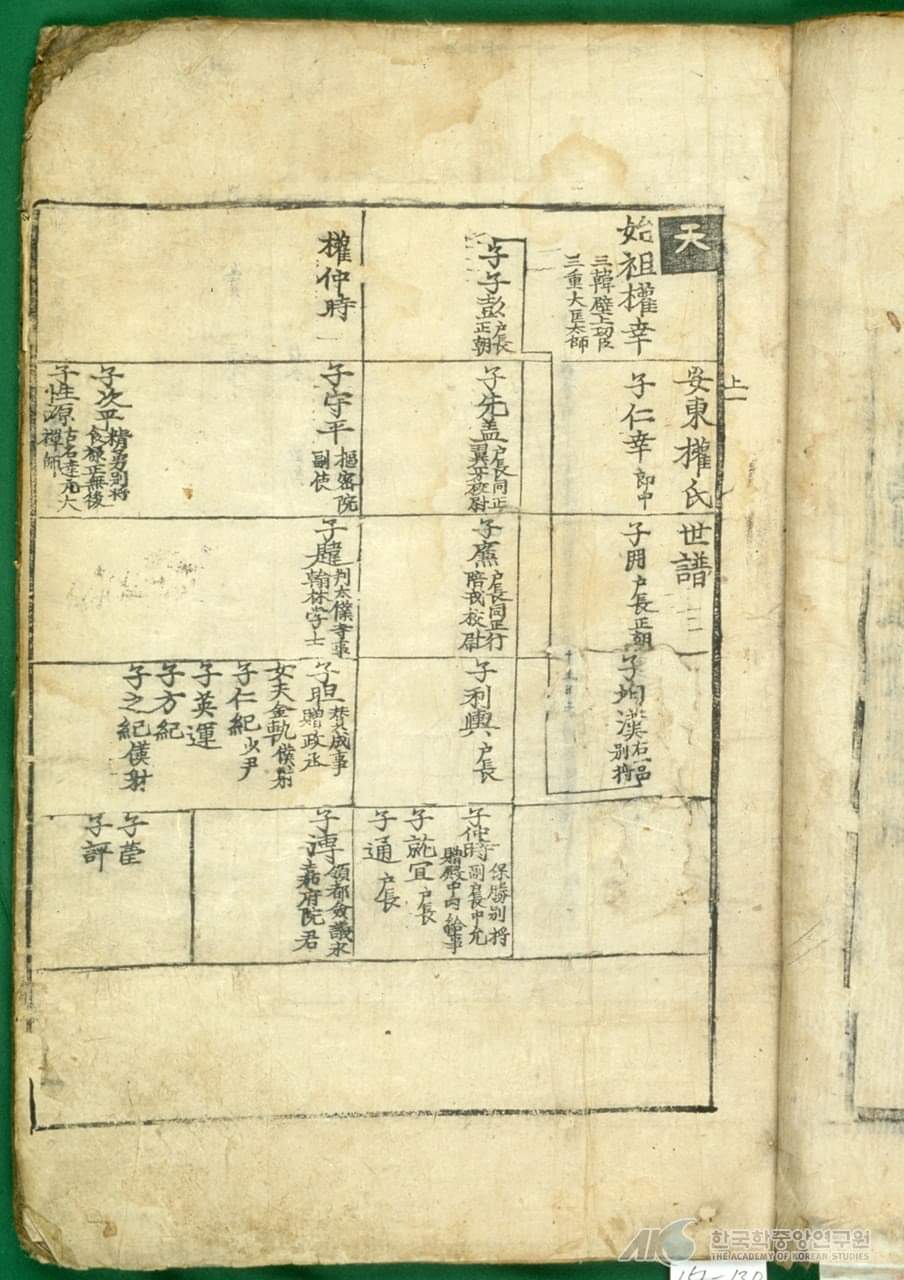 天
安東權氏世譜
上
始祖權幸
三韓壁上功臣
三重大匡太師
子仁幸 郎中
子冊 戶長正朝
子均漢 右一品
別將
子子彭 戶長
正朝
子先盖 戶長同正
翼牙校尉
子廉 戶長同正行
陪戎校尉
子利輿 戶長
子仲時 保勝別將
副戶長中允
贈殿中內給事
子就宜 戶長
子通 戶長
權仲時
子守平 樞密院
副使
子次平 精勇別將
食祿正無後
子性源 古名達
禪師
子韙 判太僕寺事
翰林學士
子㫜 贊成事
贈政丞
女夫金軌 僕射
子仁紀 少尹
子英運
子方紀
子之紀 僕射
子溥 領都僉議
嘉府院君
子萓
子評
AKS 한국학중앙연구원
THE ACADEMY OF KOREAN STUDIES